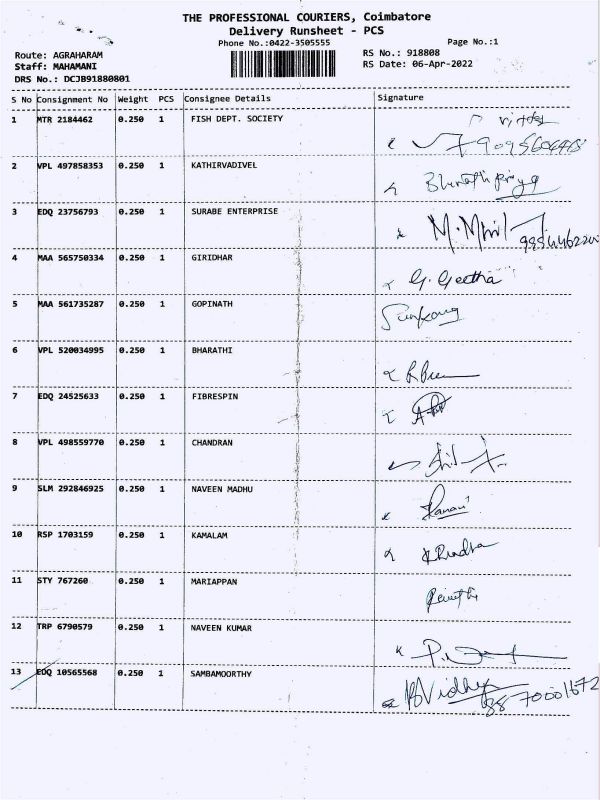 THE PROFESSIONAL COURIERS, Coimbatore
Delivery Runsheet - PCS
Phone No.:0422-3505555
Page No.:1
Route: AGRAHARAM
RS No.: 918808
Staff: MAHAMANI
RS Date: 06-Apr-2022
DRS No.: DCJB91880801
S No Consignment No Weight PCS Consignee Details Signature
1 MTR 2184462 0.250 1 FISH DEPT. SOCIETY
2 VPL 497858353 0.250 1 KATHIRVADIVEL Bharathi Priya
3 EDQ 23756793 0.250 1 SURABE ENTERPRISE
4 MAA 565750334 0.250 1 GIRIDHAR G. Geetha
5 MAA 561735287 0.250 1 GOPINATH
6 VPL 520034995 0.250 1 BHARATHI
7 EDQ 24525633 0.250 1 FIBRESPIN
8 VPL 498559770 0.250 1 CHANDRAN
9 SLM 292846925 0.250 1 NAVEEN MADHU
10 RSP 1703159 0.250 1 KAMALAM
11 STY 767260 0.250 1 MARIAPPAN
12 TRP 6790579 0.250 1 NAVEEN KUMAR
13 EDQ 10565568 0.250 1 SAMBAMOORTHY